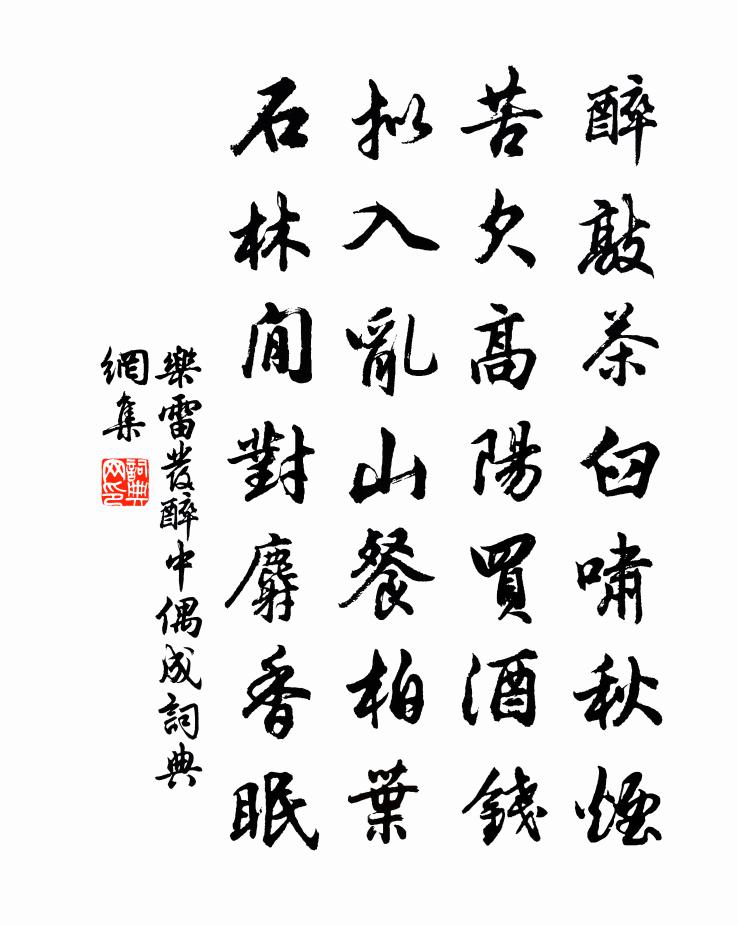 醉敲茶臼嘯秋煙
苦欠高陽買酒錢
拟入亂山餐柏葉
石林閒對麝香眠
樂雷發醉中偶成詞典
網集
詞典网印